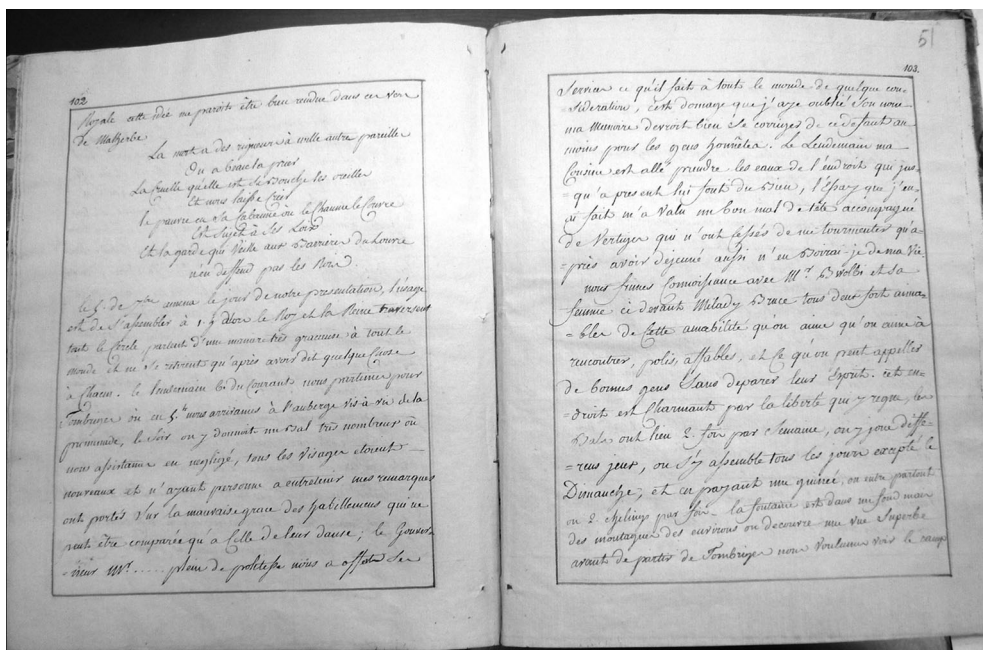 102
Royale cette idée me paroit être bien rendue dans ces vers
de Malherbe
La mort a des rigueurs à nulle autre pareille
On a beau la prier
La cruelle quelle est se Bouche les oreilles
Et nous laisse crier
le pauvre en sa Cabanne où le Chaume le Couvre
Est sujet à ses Loix
Et la garde qui veille aux Barriéres du Louvre
n'en deffend pas les Rois.
le 5. de amena le jour de notre presentation, l'usage
est de s'assembler à 1. alors le Roy et la Reine traversent
tout le Cercle parlant d'une maniere très gracieuse à tout le
monde et ne se retirent qu'après avoir dit quelque Chose
à Chacun. le lendemain 6. du Courant nous partimes pour
Tombrige où en 5. h nous arrivames à l'auberge vis-à-vis de la
promenade, le soir on y donnoit un Bal très nombreux où
nous assistames en negligé, tous les visages etoient
nouveaux et n'ayant personne a entretenir mes remarques
ont portés sur la mauvaise grace des habillemens qui ne
peut être comparée qu'a Celle de leur danse; le Gouver
=neur Mr. ..... plein de politesse nous a offert ses
51
103.
Services ce qu'il fait à tout le monde de quelque con=
sideration, c'est domage que j'aye oublié son nom
ma Memoire devroit bien se corriger de ce defaut au
moins pour les gens honnêtes. Le Lendemain ma
Cousine est allé prendre les eaux de l'endroit qui jus=
=qu'a present lui font du Bien, l'Essay que j'en
ai fait m'a valu un bon mal de tête accompagné
de Vertiges qui n'ont cessés de me tourmenter qu'a=
=près avoir dejeuné aussi n'en Boirai-je de ma Vie
nous fimes Connoissance avec Mr. et sa
femme ci devant Milady Bruce tous deux fort aima=
=bles de Cette amabilité qu'on aime qu'on aime à
rencontrer, polis, affables, et ce qu'on peut appeller
de bonnes gens Sans deparer leur Esprit. cet en=
=droit est Charmant par la liberté qui y regne, les
Bals ont lieu 2. fois par Semaine, on y joue diffe=
=rens jeux, on s'y assemble tous les jours excepté le
Dimanche; et en payant une guinée, on entre partout
ou 2. chelings par fois - la fontaine est dans un fond mais
des montagnes des environs on decouvre une vue Superbe
avant de partir de Tombrige nous voulumes voir le camp